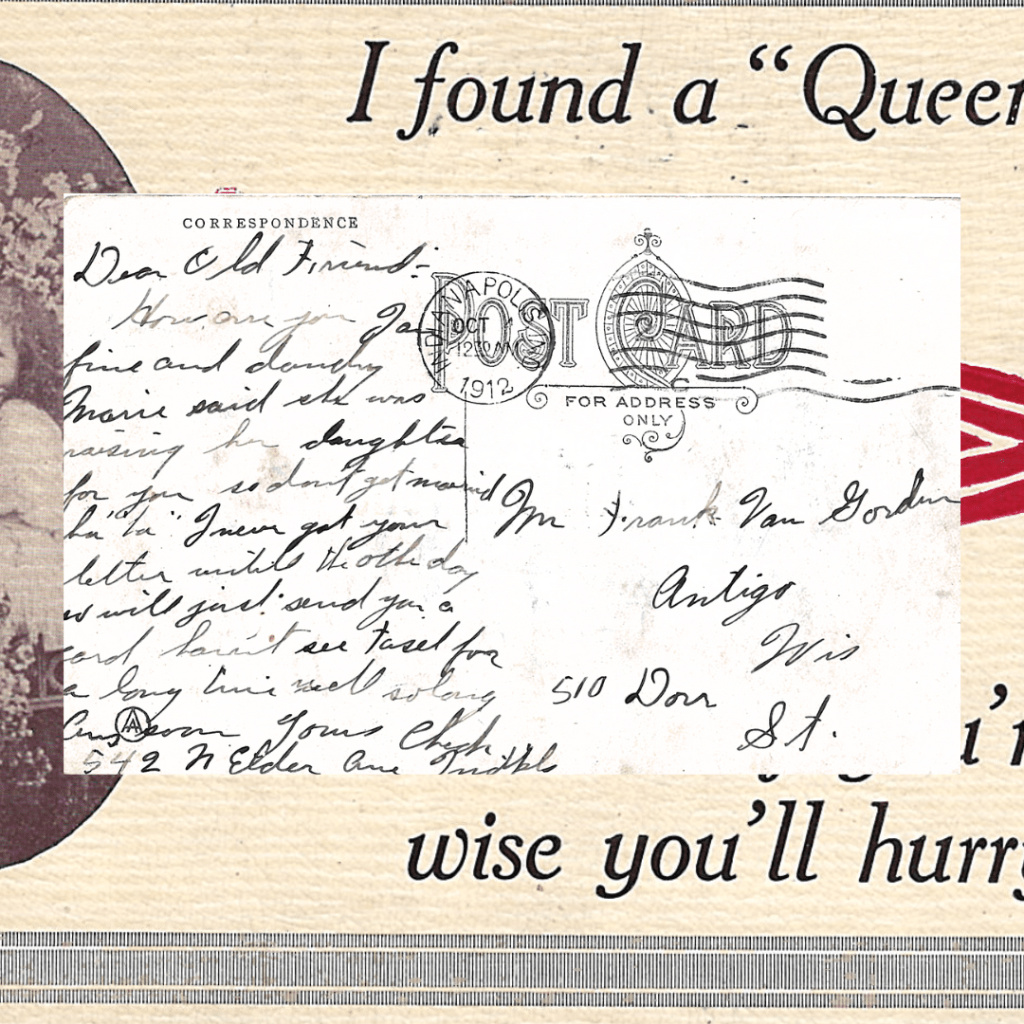 I found a “Queen
CORRESPONDENCE
Dear Old Friend:-
How are you Ja
fine and dandy
Marie said she was
raising her daughter
for you so dont get married
"ha ta" I never got your
letter until the oth day
so will just send you a
card havn't see Tasel for
a long time well solong
Ans soon Yours Chick
542 N Elder Ave Indpls
POST CARD
INDIANAPOLIS IND.
OCT
12:30 AM
1912
FOR ADDRESS
ONLY
Mr Frank Van Gordon
Antigo
Wis
510 Dorr
St.
wise you’ll hurry